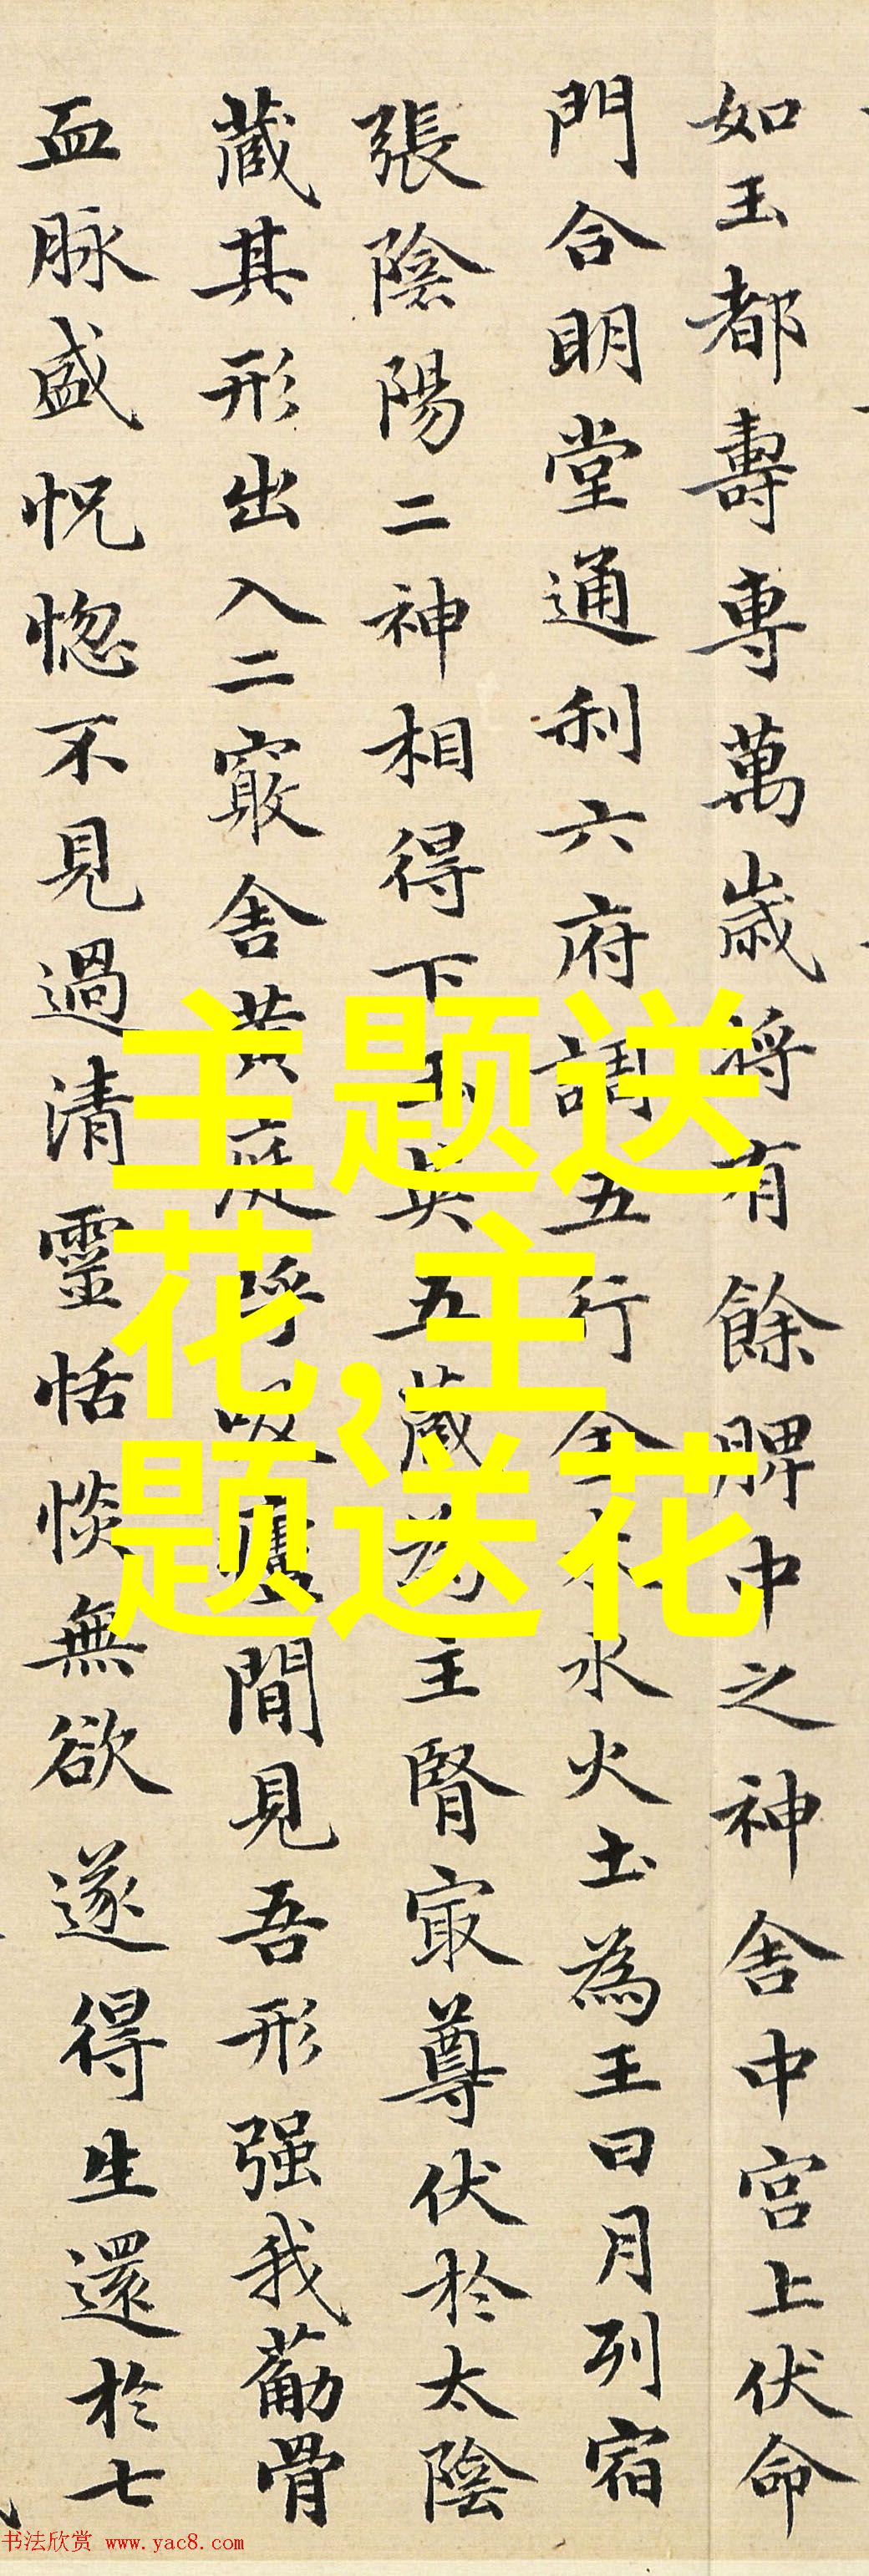 如玉都壽專萬歲将有餘脾中之神舎中宮上伏命
門合明堂通利六府調五行金木水火土為王日月列宿
張陰陽二神相得下玉英五蔵為主腎寂尊伏於太陰
蔵其形出入二竅舎黄庭呼吸廬間見吾形强我葋骨
血脉盛怳惚不見過清靈恬惔無欲遂得生還於七
主题送
花,主
题送花
书法欣赏 www.yac8.com